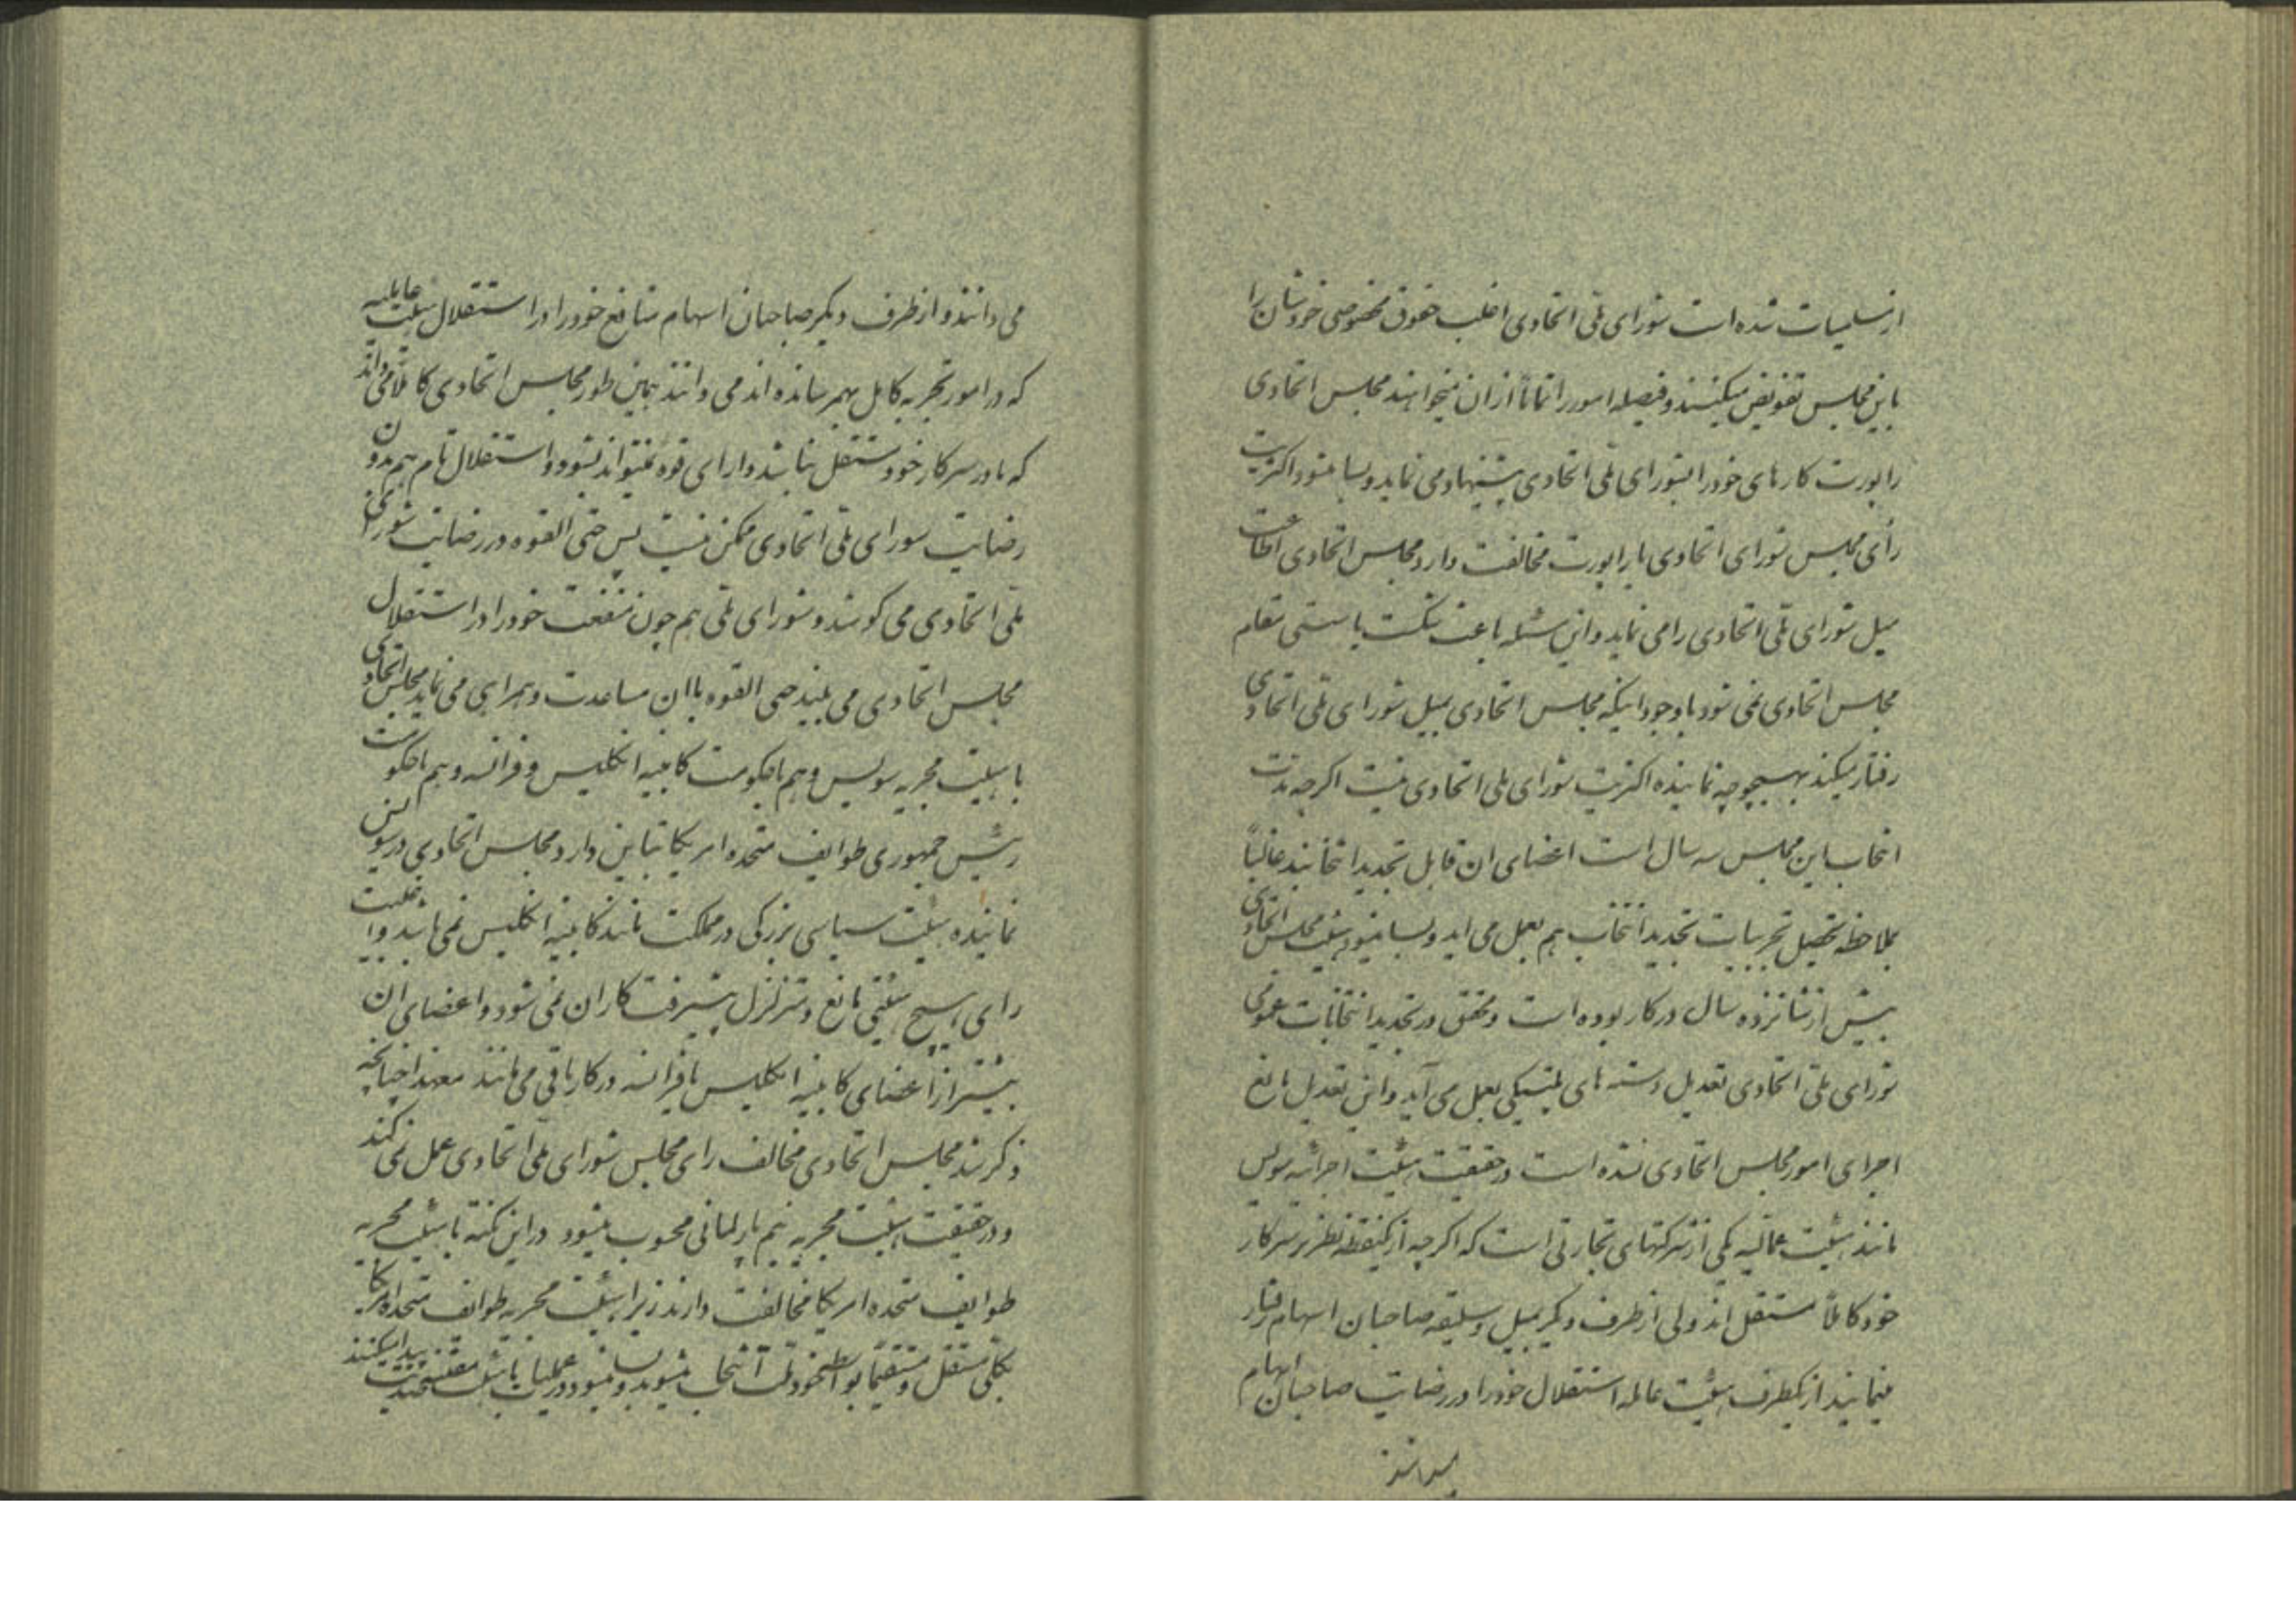 از مسلمیات شده است شورای ملی اتحادی اغلب حقوق مخصوصی خودشان را
باین مجلس تفویض میکنند و فیصله امور را تماماً از ان میخواهند مجلس اتحادی
راپورت کارهای خود را بشورای ملی اتحادی پیشنهاد می نماید و بسا میشود اکثریت
رأی مجلس شورای اتحادی با راپورت مخالفت دارد مجلس اتحادی اطاعت
میل شورای ملی اتحادی را می نماید و این مسئله باعث شکست یا سستی مقام
مجلس اتحادی نمی شود با وجود اینکه مجلس اتحادی بمیل شورای ملی اتحادی
رفتار میکند بهیچوجه نماینده اکثریت شورای ملی اتحادی نیست اگرچه مدت
انتخاب این مجلس سه سال است اعضای ان قابل تجدید انتخابند غالباً
بملاحظه تحصیل تجربیات تجدید انتخاب هم بعمل می اید و بسا میشود هیئت مجلس اتحادی
بیش از شانزده سال در کار بوده است و محقق در تجدید انتخابات عمومی
شورای ملی اتحادی تعدیل دسته های پلتیکی بعمل می آید و این تعدیل مانع
اجرای امور مجلس اتحادی نشده است در حقیقت هیئت اجرائیه سویس
مانند هیئت عمالیه یکی از شرکتهای تجارتی است که اگرچه از یکنقطه نظر بر سر کار
خود کاملاً مستقل اند ولی از طرف دیگر بمیل و سلیقه صاحبان اسهام رفتار
مینمایند از یکطرف هیئت عامله استقلال خود را در رضایت صاحبان اسهام
میدانند
می دانند و از طرف دیگر صاحبان اسهام منافع خود را در استقلال هیئت عاملیه
که در امور تجربه کامل بهمرسانده اند می دانند بهمین طور مجلس اتحادی کاملاً می داند
که تا در سر کار خود مستقل نباشد دارای قوه نمیتواند بشود و استقلال تام هم بدون
رضایت شورای ملی اتحادی ممکن نیست پس حتی القوه در رضایت شورای
ملی اتحادی می کوشد و شورای ملی هم چون منفعت خود را در استقلال
مجلس اتحادی می بیند حتی القوه با ان مساعدت و همراهی می نماید مجلس اتحادی
با هیئت مجریه سویس و هم با حکومت کابینه انگلیس و فرانسه و هم با حکومت
رئیس جمهوری طوایف متحده امریکا تباین دارد مجلس اتحادی در سویس
نماینده هیئت سیاسی بزرگی در مملکت مانند کابینه انگلیس نمی باشد و اغلبیت
رای هیچ هیئتی مانع و متزلزل پیشرفت کار ان نمی شود و اعضای ان
بیشتر از اعضای کابینه انگلیس یا فرانسه در کار باقی می مانند معهذا چنانچه
ذکر شد مجلس اتحادی مخالف رای مجلس شورای ملی اتحادی عمل نمی کند
و در حقیقت هیئت مجریه نیم پارلمانی محسوب میشود در این نکته با هیئت مجریه
طوایف متحده امریکا مخالفت دارند زیرا هیئت مجریه طوایف متحده امریکا
بکلی مستقل و مستقیماً بواسطه خود ملت انتخاب میشوند و بسا میشود در عملیات با هیئت مقننه ضدیت پیدا میکنند